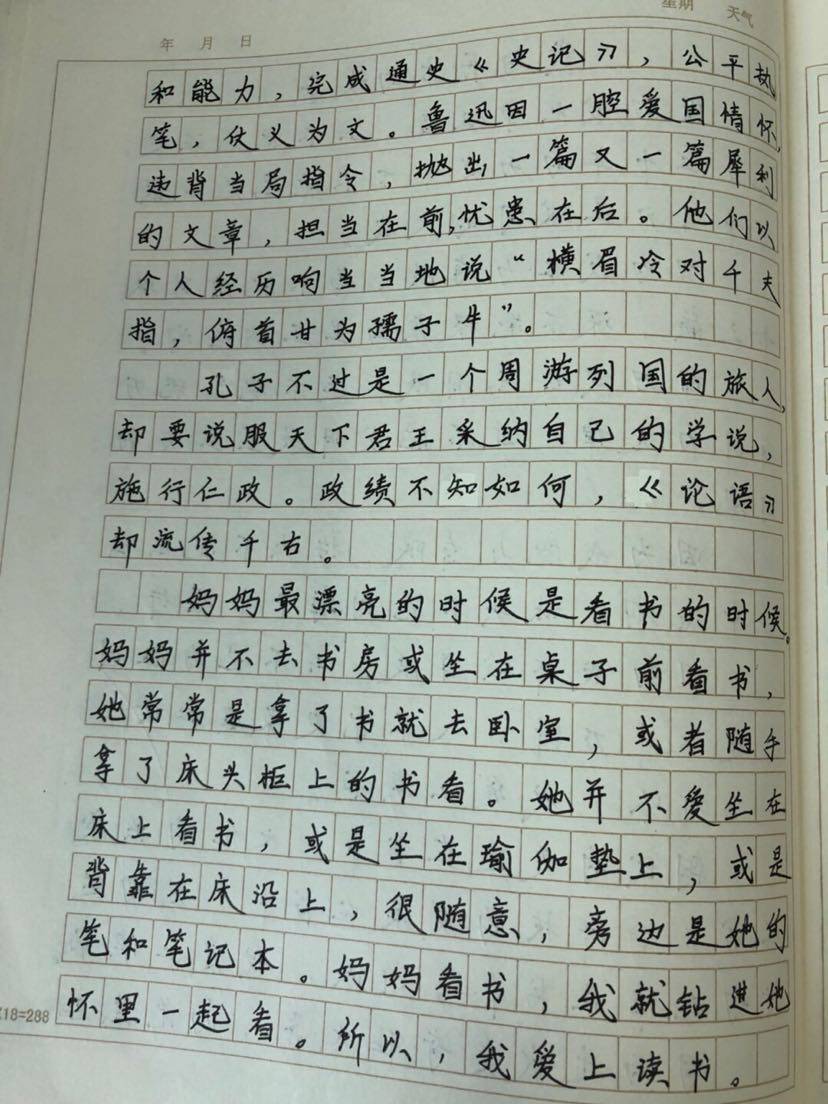 星期 天气
年 月 日
和能力，完成通史《史记》，公平执
笔，仗义为文。鲁迅因一腔爱国情怀，
违背当局指令，抛出一篇又一篇犀利
的文章，担当在前，忧患在后。他们以
个人经历响当当地说“横眉冷对千夫
指，俯首甘为孺子牛”。
孔子不过是一个周游列国的旅人，
却要说服天下君王采纳自己的学说，
施行仁政。政绩不知如何，《论语》
却流传千古。
妈妈最漂亮的时候是看书的时候。
妈妈并不去书房或坐在桌子前看书，
她常常是拿了书就去卧室，或者随手
拿了床头柜上的书看。她并不爱坐在
床上看书，或是坐在瑜伽垫上，或是
背靠在床沿上，很随意，旁边是她的
笔和笔记本。妈妈看书，我就钻进她
怀里一起看。所以，我爱上读书。
18=288